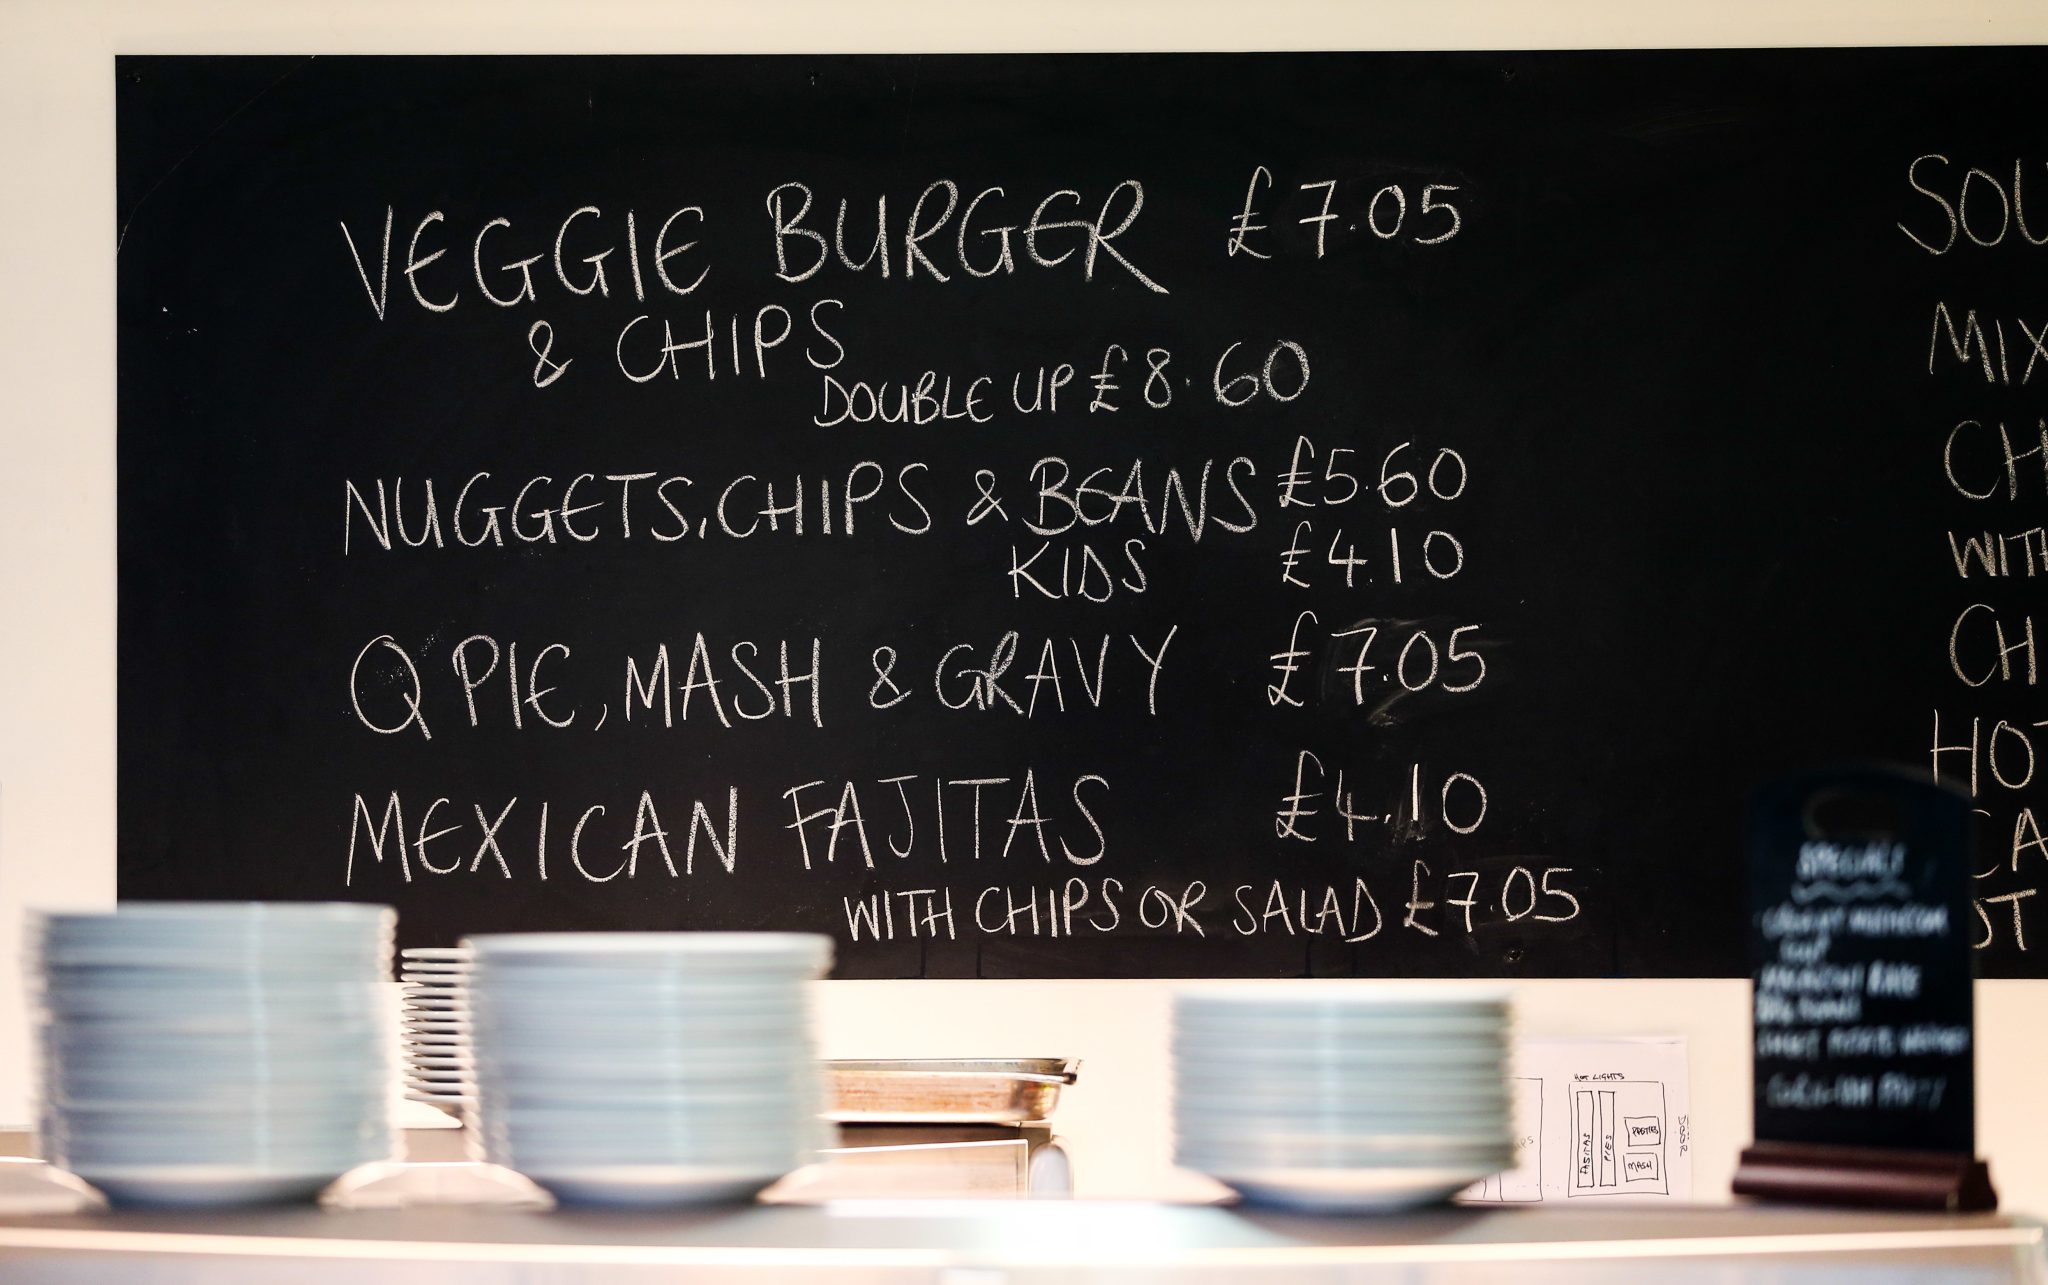 VEGGIE BURGER £7.05
& CHIPS
DOUBLE UP £8.60
NUGGETS, CHIPS & BEANS £5.60
KIDS £4.10
Q PIE, MASH & GRAVY £7.05
MEXICAN FAJITAS £4.10
WITH CHIPS OR SALAD £7.05
SOU
MIX
CH
WITH
CH
HOT
CA
ST
SPECIALS
HOT LIGHTS
FAJITAS
PIES
PASTIES
MASH
DOOR